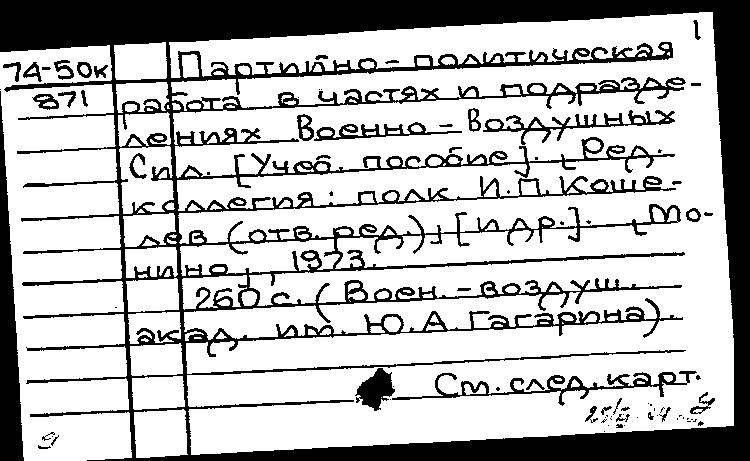 1
74-50к Партийно-политическая
871 работа в частях и подразде-
лениях Военно-Воздушных
Сил. [Учеб. пособие]. [Ред.
коллегия: полк. И.П. Коше-
лев (отв. ред.)] [и др.]. [Мо-
нино], 1973.
260 с. (Воен.-воздуш.
акад. им. Ю.А. Гагарина).
См. след. карт.
9